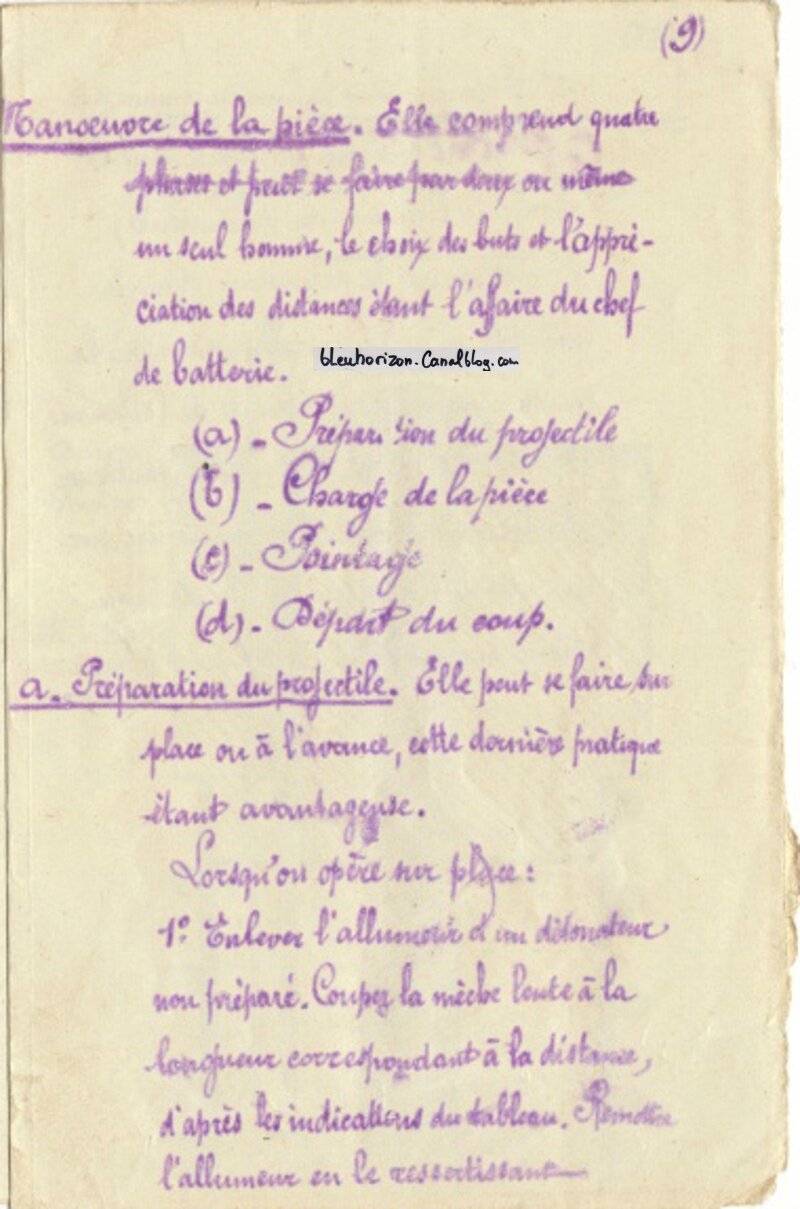 (9)
Manoeuvre de la pièce. Elle comprend quatre
phases et peut se faire par deux ou même
un seul homme, le choix des buts et l'appré-
ciation des distances étant l'affaire du chef
de batterie.
bleuhorizon.Canalblog.com
(a) - Préparation du projectile
(b) - Charge de la pièce
(c) - Pointage
(d) - Départ du coup.
a. Préparation du projectile. Elle peut se faire sur
place ou à l'avance, cette dernière pratique
étant avantageuse.
Lorsqu'on opère sur place :
1º Enlever l'allumeur d'un détonateur
non préparé. Coupez la mèche lente à la
longueur correspondant à la distance,
d'après les indications du tableau. Remettre
l'allumeur en le ressertissant